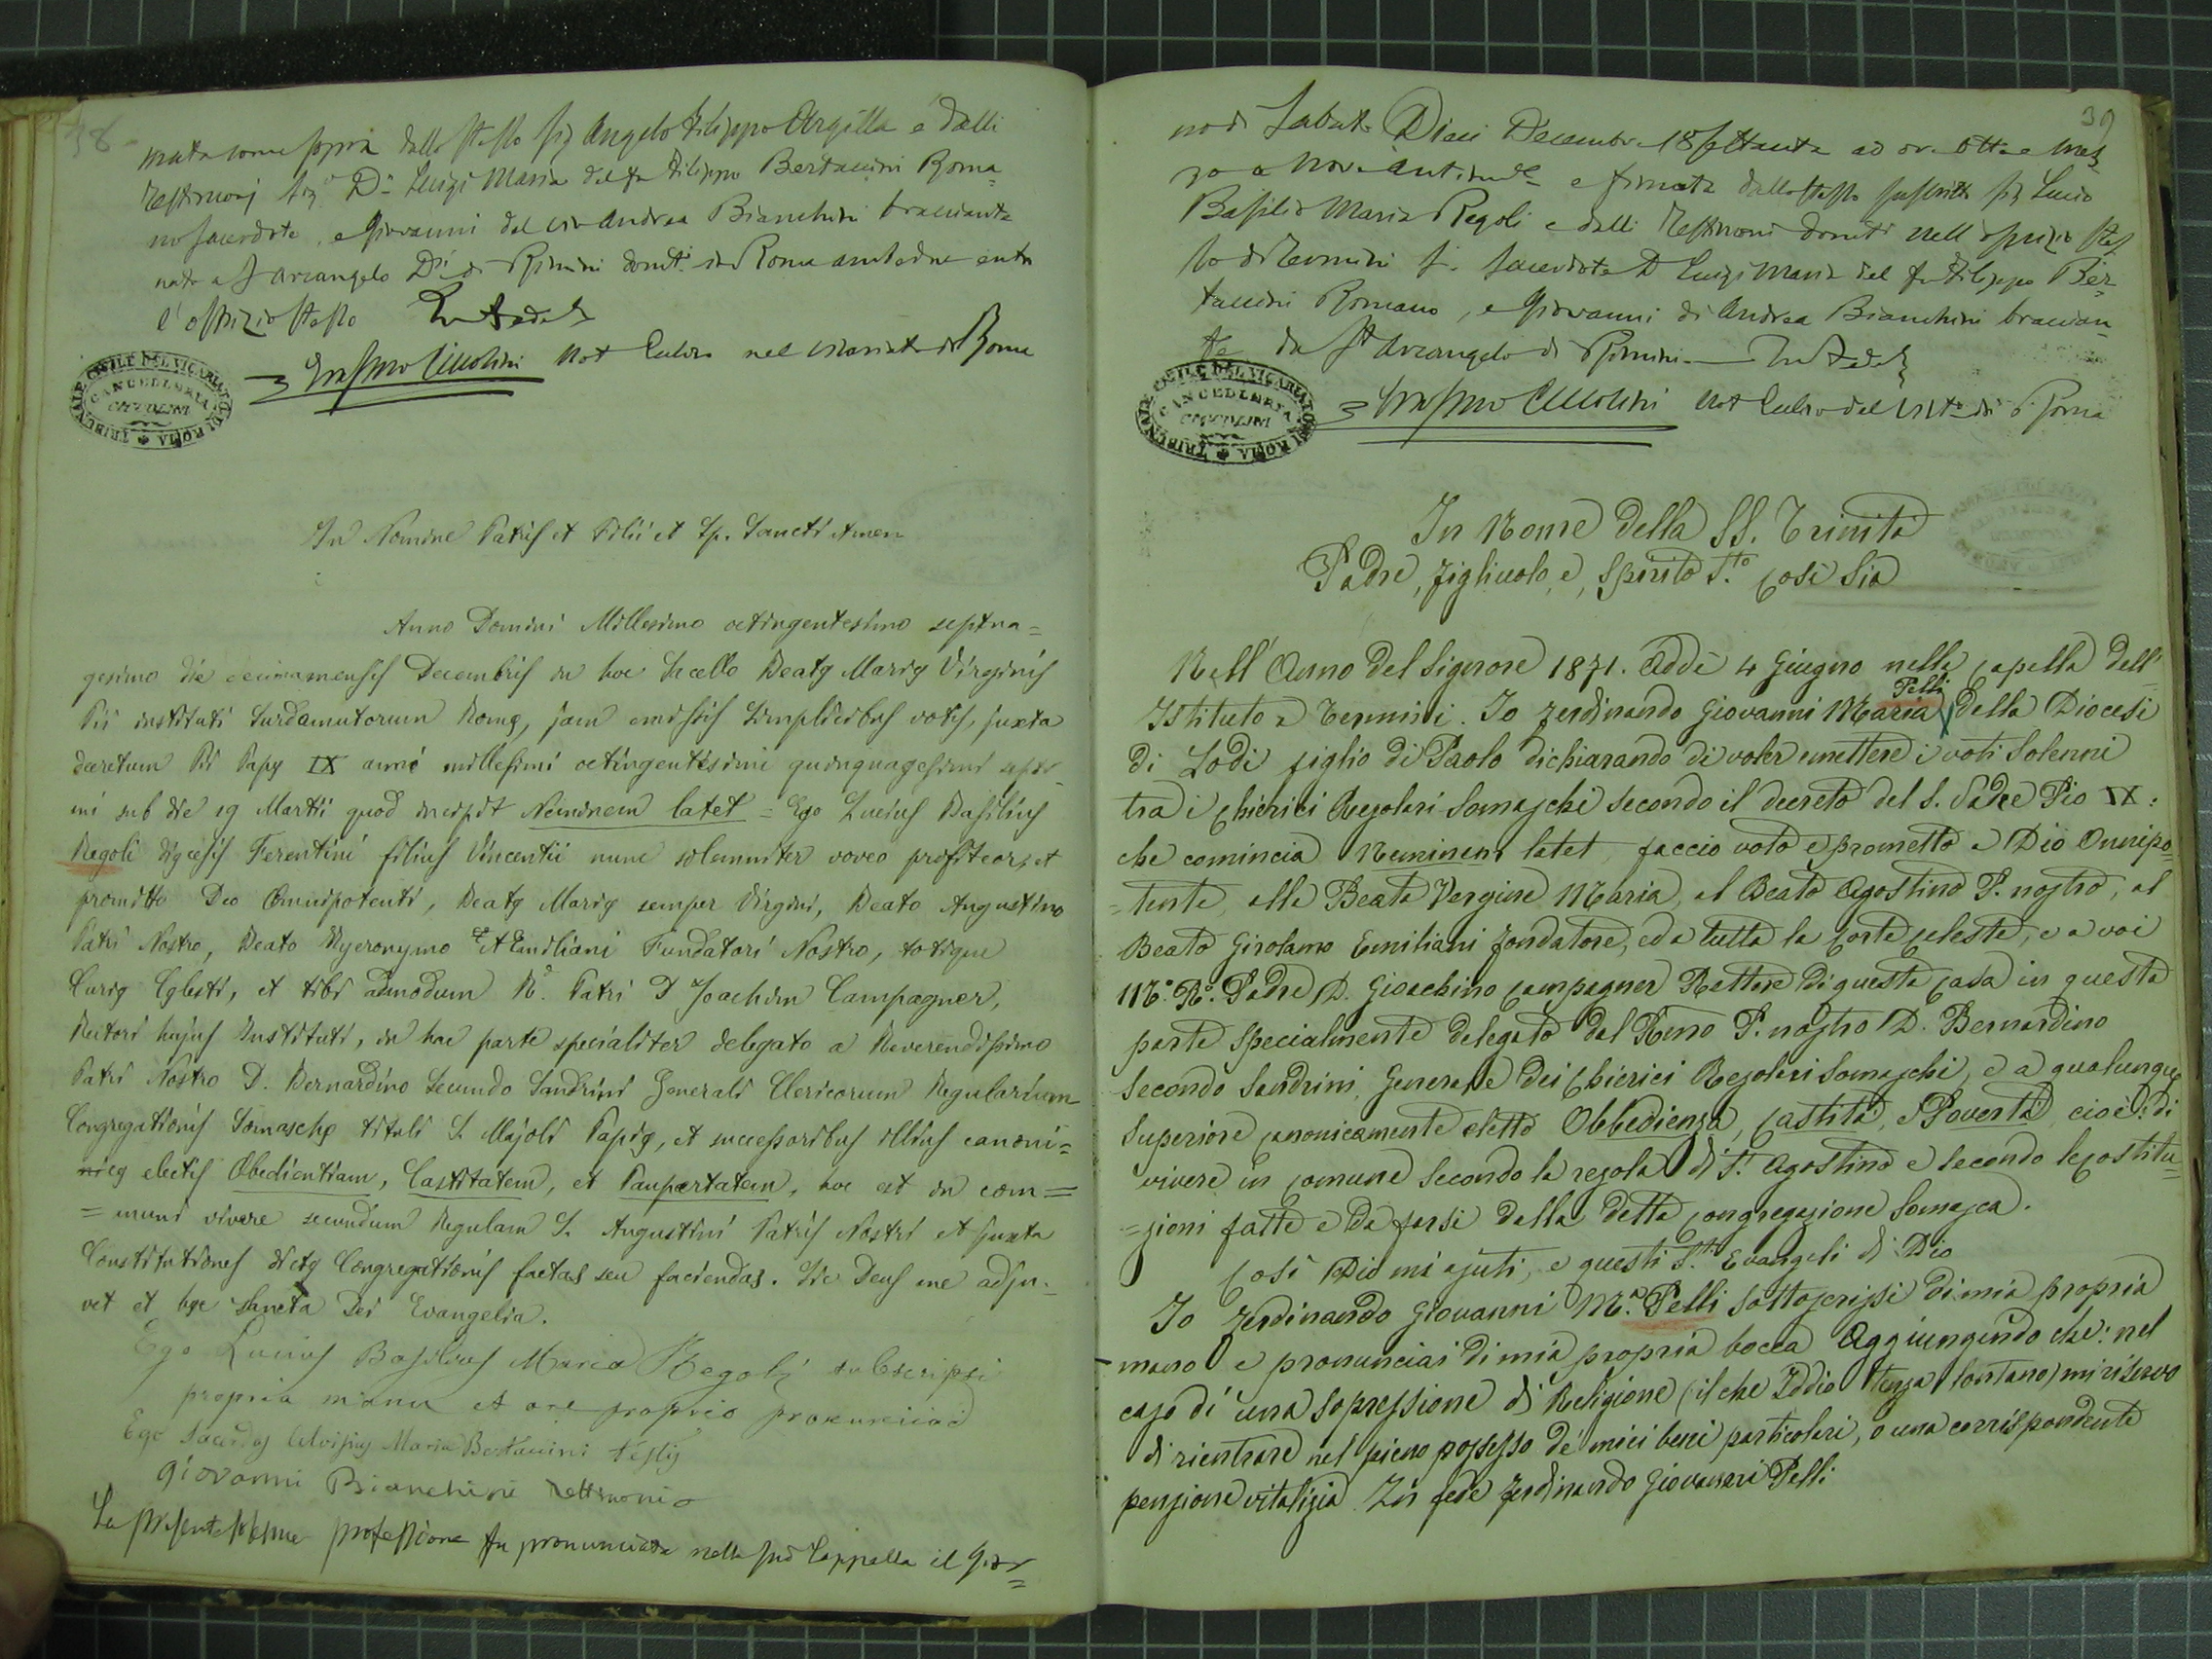 38
mata come sopra dallo stesso Sig Angelo Filippo Argilla e dalli
Testimonj Sig.r D.n Luigi Maria del fu Filippo Bertaccini Roma=
no Sacerdote, e Giovanni del vivo Andrea Bianchini bracciante
nato a S Arcangelo D.si di Rimini domt. in Roma ambedue entro
l'ospizio stesso In Fede
Not Civile nel Vicariato di Roma
TRIBUNALE CIVILE DEL VICARIATO DI ROMA
CANCELLERIA
CICCOLINI
In Nomine Patris et Filii et Sp. Sancti Amen
Anno Domini Millesimo octingentesimo septua=
gesimo die decima mensis Decembris in hoc Sacello Beatę Marię Virginis
Pii instituti Surdomutorum Romę, jam emissis simplicibus votis, juxta
decretum Pii Papę IX anni millesimi octingentisimi quinquagesimi septi-
mi sub die 19 Martii quod incipit Neminem latet = Ego Lucius Basilius
Regoli digcesis Ferentini filius Vincentii nunc solemniter voveo profiteor, et
promitto Deo Omnipotenti, Beatę Marię semper Virgini, Beato Augustino
Patri Nostro, Beato Hyeronymo Ęmiliani Fundatori Nostro, totique
Curię Cęlesti, et tibi admodum R.d Patri D Joachim Campagner,
Rectori hujus Instituti, in hac parte specialiter delegato a Reverendissimo
Patri Nostro D. Bernardino Secundo Sandrini Generali Clericorum Regularium
Congregationis Somaschę tituli S. Majoli Papię, et successoribus illius canoni=
cę electis Obedientiam, Castitatem, et Paupertatem, hoc est in com=
=muni vivere secundum Regulam S. Augustini Patris Nostri et juxta
Constitutiones dictę Congregationis factas seu faciendas. Sic Deus me adju-
vet et hęc Sancta Dei Evangelia.
Ego Lucius Basilius Maria Regoli subscripsi
propria manu et ore proprio pronunciavi
Ego Sacerdos Aloisius Maria Bertaccini Testis
Giovanni Bianchini Testimonio
La presente solenne professione fu pronunciata nella sud Cappella il gior=
39
no di Sabato Dieci Decembre 18settanta ad ore otto e mez
zo a Nove antimed.e e firmata dallo stesso suscritto Sig Lucio
Basilio Maria Regoli e dalli Testimoni domti nell ospizio stes
so di Termini S. Sacerdote D Luigi Maria del fu Filippo Ber=
taccini Romano, e Giovanni di Andrea Bianchini braccian=
te da St Arcangelo di Rimini — In Fede
Not Civile del Vict.o di Roma
TRIBUNALE CIVILE DEL VICARIATO DI ROMA
CANCELLERIA
CICCOLINI
In Nome della SS. Trinità
Padre, Figliuolo, e, Spirito S.to Così Sia
Nell' Anno del Signore 1871. Addì 4 Giugno nella Capella dell'
Istituto a Termini. Io Ferdinando Giovanni Maria Pelli della Diocesi
di Lodi figlio di Paolo dichiarando di voler emettere i voti Solenni
tra i Chierici Regolari Somaschi secondo il decreto del S. Padre Pio IX:
che comincia Neminem latet, faccio voto e prometto a Dio Onnipo=
=tente, alla Beata Vergine Maria, al Beato Agostino P. nostro, al
Beato Girolamo Emiliani fondatore, ed a tutta la Corte Celeste, e a voi
M.o R.o Padre D. Gioachino Campagner Rettore di questa Casa in questa
parte Specialmente delegato dal Rmo P. nostro D. Bernardino
Secondo Sandrini, Generale dei Chierici Regolari Somaschi, e a qualunque
Superiore Canonicamente eletto Obbedienza, Castità, e Povertà, cioè: di
vivere in Comune secondo la regola di S. Agostino e secondo le Costitu=
=zioni fatte e da farsi della detta Congregazione Somasca.
Così Dio mi ajuti, e questi S.ti Evangeli di Dio
Io Ferdinando Giovanni M.a Pelli sottoscrissi di mia propria
mano e pronunciai di mia propria bocca Aggiungendo che: nel
caso di una sopressione di Religione (il che Iddio tenga lontano) mi riservo
di rientrare nel pieno possesso de' miei beni particolari, o una corrispondente
pensione vitalizia. In fede Ferdinando Giovanni Pelli